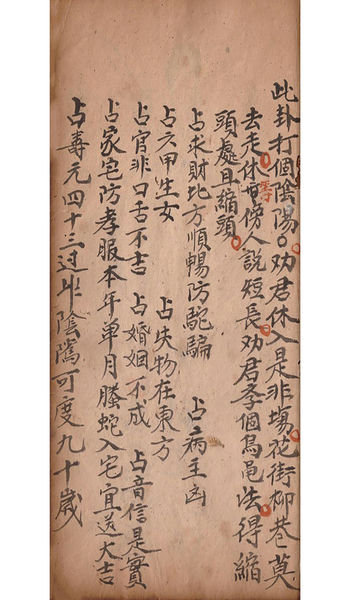 此卦打個陰陽口劝君休入是非場花街柳巷莫
去走休聼傍人說短長劝君季個烏黾法得縮
頭處且縮頭
占求財北方順暢防駝騙 占病主凶
占六甲生女 占失物在東方
占官非口舌不吉 占婚姻不成 占音信是實
占家宅防孝服本年单月螣蛇入宅宜送大吉
占壽元四十三过此陰隲可度九十歲